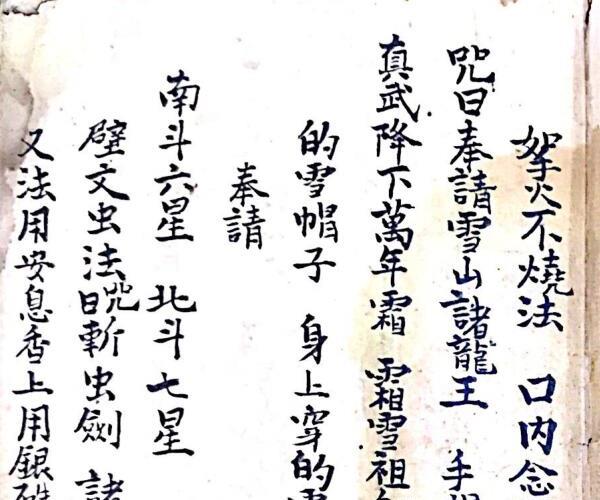 拏火不燒法 口內念
咒曰奉請雪山諸龍王 手
真武降下萬年霜 霜雪祖
的雪帽子 身上穿的
奉請
南斗六星 北斗七星
壁文虫法咒曰斬虫劍 諸
又法用安息香上用銀硃